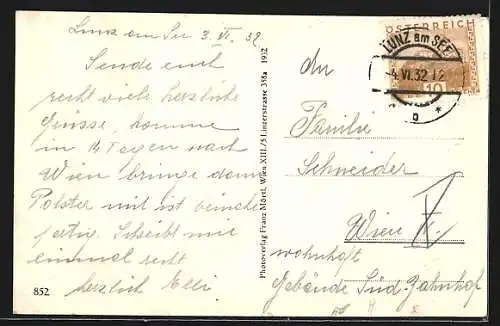 Lunz am See 3. VI. 32
Sende euch
recht viele herzliche
Grüsse, komme
in 14 Tagen nach
Wien bringe dann
Polster mit ist beinahe
fertig. Schreibt mir
einmal recht
herzlich Elli
852
Photoverlag Franz Mörtl, Wien XIII./5 Linzerstrasse 358a 1932
ÖSTERREICH
10
LUNZ am SEE
-4.VI.32.12
b
*
An
Familie
Schneider
Wien X.
wohnhaft
Gebäude Süd-Bahnhof